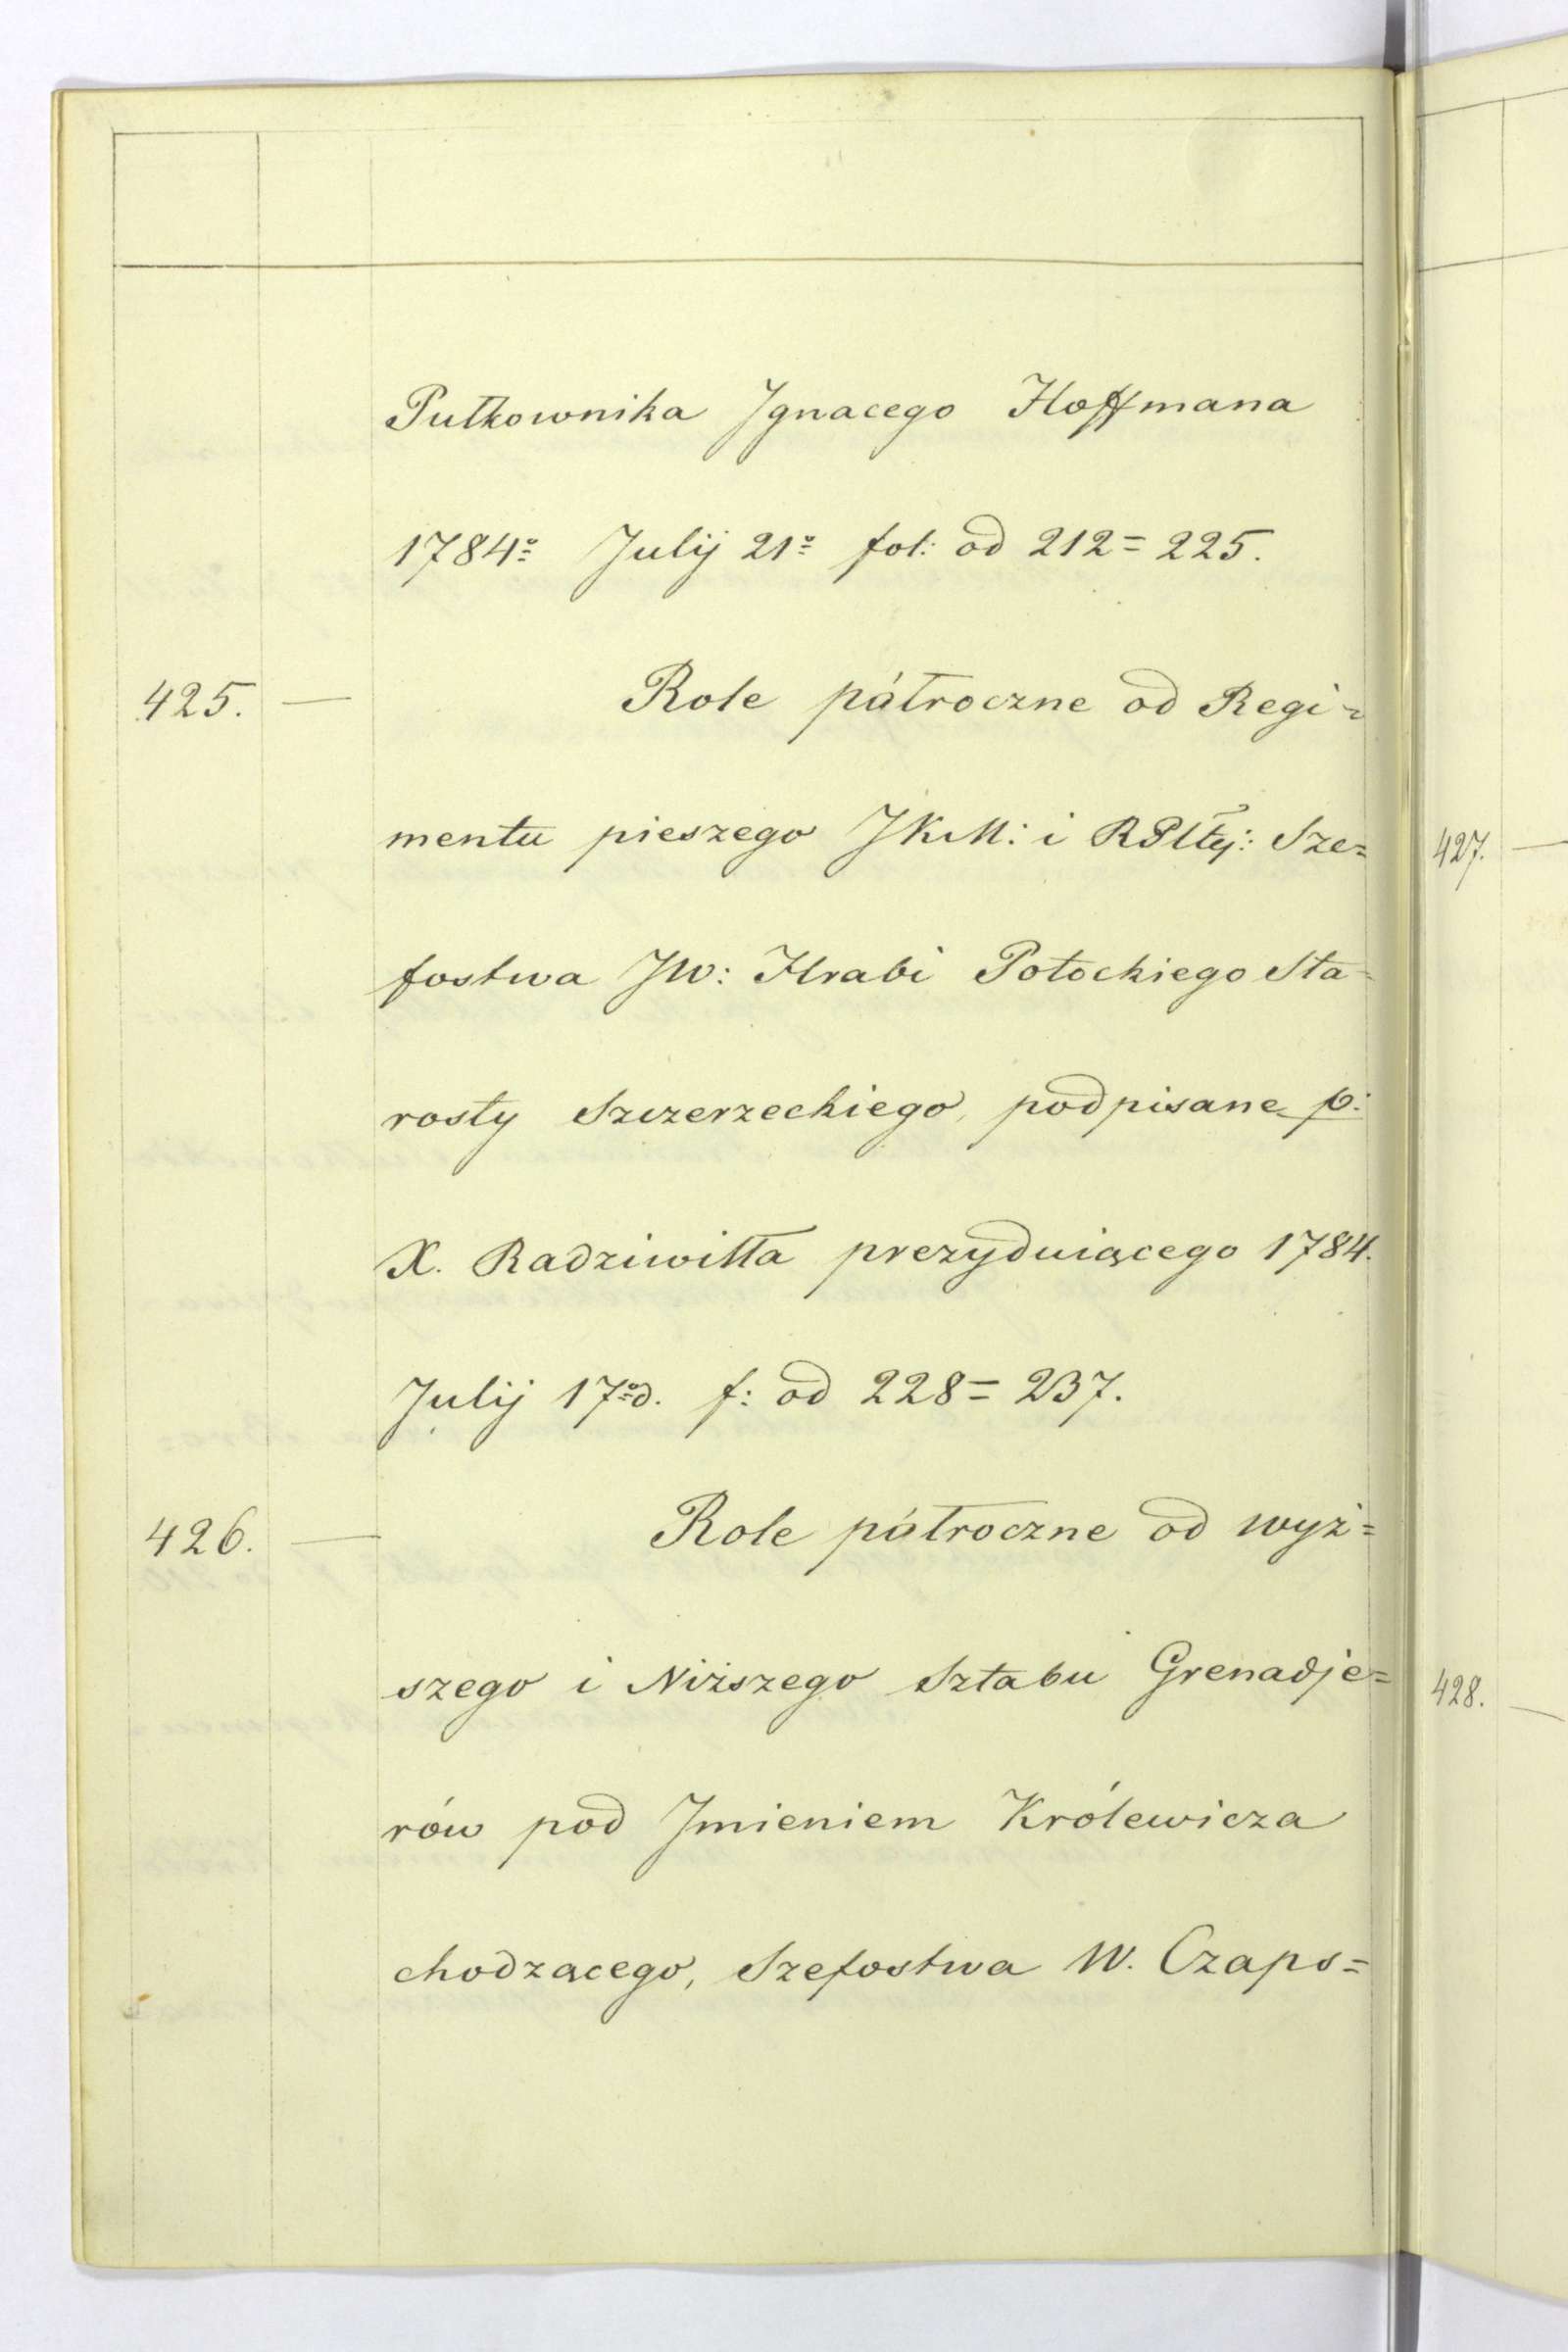 Pułkownika Ignacego Hoffmana
1784o Julij 21o fol: od 212=225.
425. — Role półroczne od Regi=
mentu pieszego JKM: i RPltej: Sze=
fostwa JW: Hrabi Potockiego Sta=
rosty Szczerzeckiego, podpisane p:
X. Radziwiłła prezyduiącego 1784.
Julij 17o d. f: od 228=237.
426. — Role półroczne od wyż=
szego i Niższego Sztabu Grenadje=
rów pod Jmieniem Królewicza
chodzącego, Szefostwa W. Czaps=
427. —
428. —